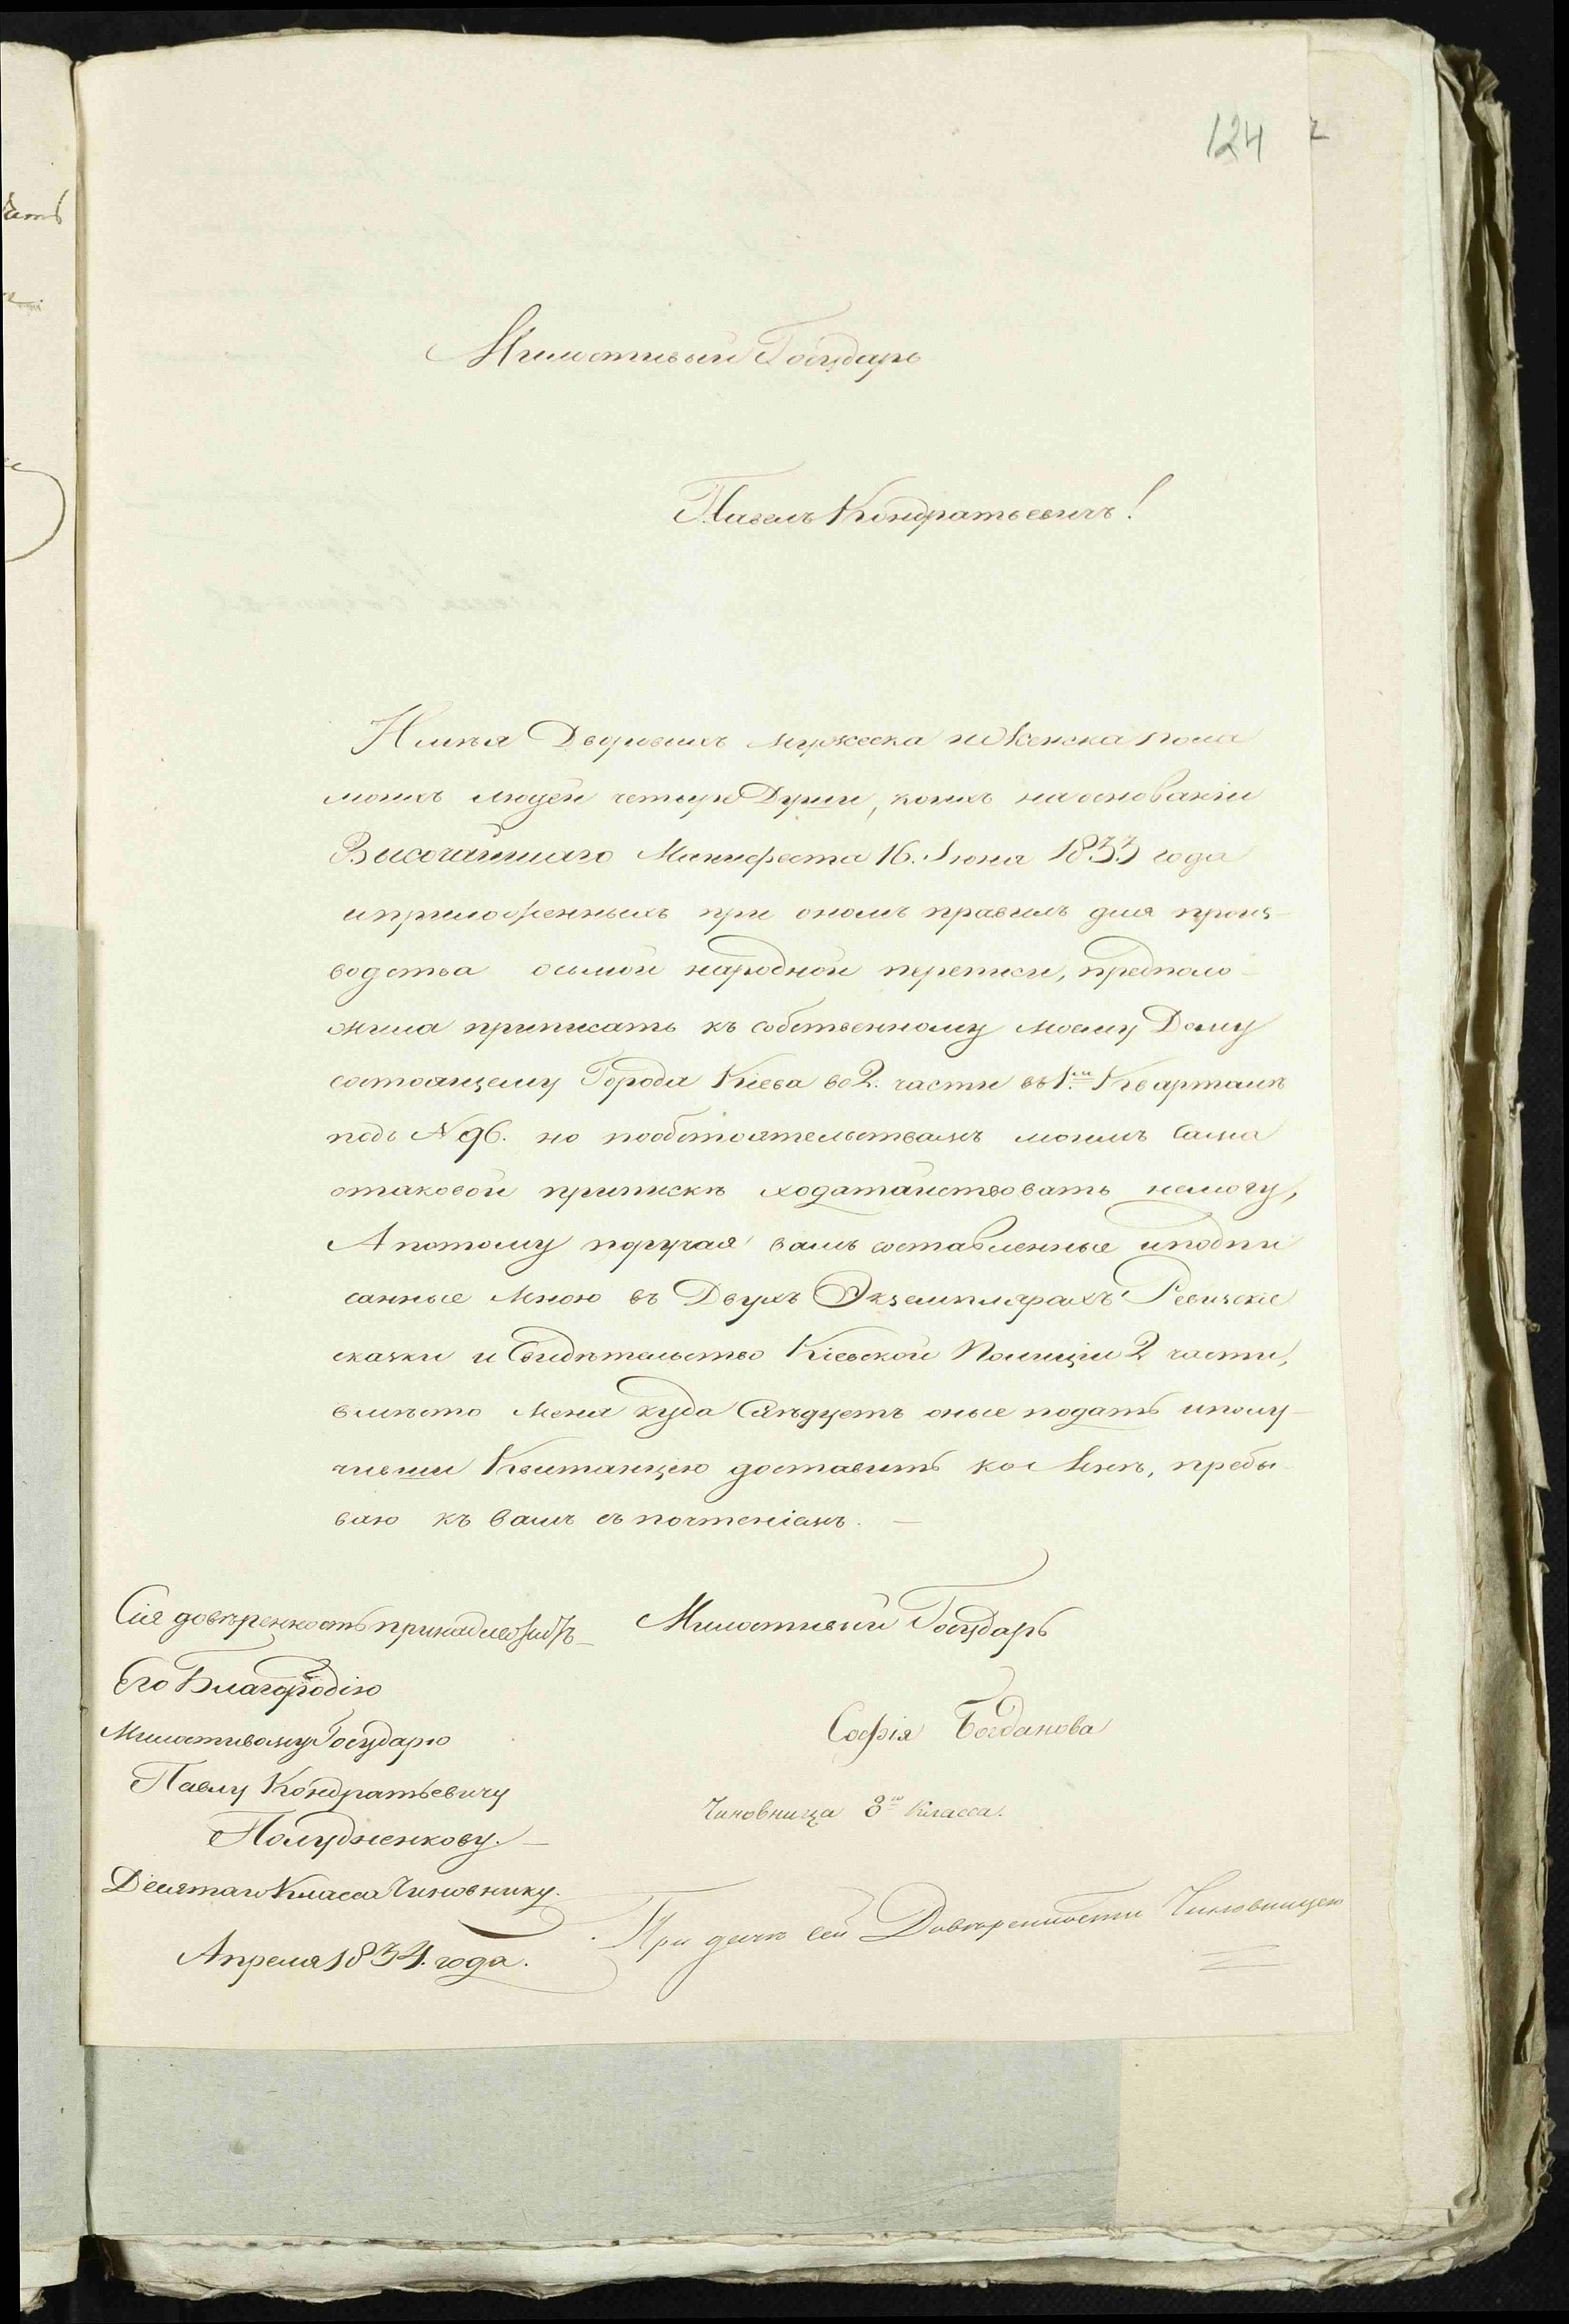 124
Милостивый Государь
Павелъ Кондратьевичъ!
Имѣя Дворовыхъ мужеска и женска пола
моихъ людей четыре Души, коихъ на основаніи
Высочайшаго Манифеста 16. Іюня 1833 года
и приложенныхъ при ономъ правилъ для произ-
водства осьмой народной переписи, предполо-
жила приписать къ собственному моему Дому
состоящему Города Кіева во 2. части въ 1.м Кварталѣ
подъ №96. но пообстоятельствамъ моимъ Сама
отаковой припискѣ ходатайствовать немогу,
А потому поручая вамъ составленные и подпи
санные мною въ Двухъ Экземплярахъ Ревизские
сказки и Свидѣтельство Кіевской Полиціи 2 части,
вмѣсто меня куда Слѣдуетъ оные подать и полу-
чивши Квитанцію доставить ко мнѣ, пребы-
ваю къ вамъ съ почтеніемъ. —
Милостивый Государь
Софія Богданова
Чиновница 8й Класса.
Сія довѣренность принадлежитъ
Его Благородію
Милостивому Государю
Павлу Кондратьевичу
Полудненкову. —
Десятаго Класса Чиновнику.
Апреля 1834. года.
При дачѣ сей Довѣренности Чиновницею